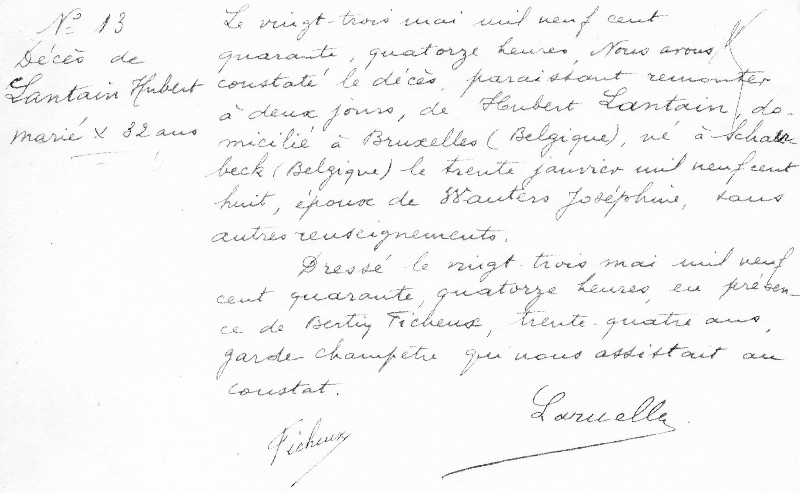 N° 13
Décès de
Lantain Hubert
marié x 32 ans
Le vingt-trois mai mil neuf cent
quarante, quatorze heures, Nous avons
constaté le décès, paraissant remonter
à deux jours, de Hubert Lantain, do-
micilié à Bruxelles (Belgique), né à Schaer-
beck (Belgique) le trente janvier mil neuf cent
huit, époux de Wauters Joséphine, sans
autres renseignements.
Dressé le vingt-trois mai mil neuf
cent quarante, quatorze heures, en présen-
ce de Bertin Ficheux, trente-quatre ans,
garde-champêtre qui nous assistait au
constat.
Ficheux
Laruelle